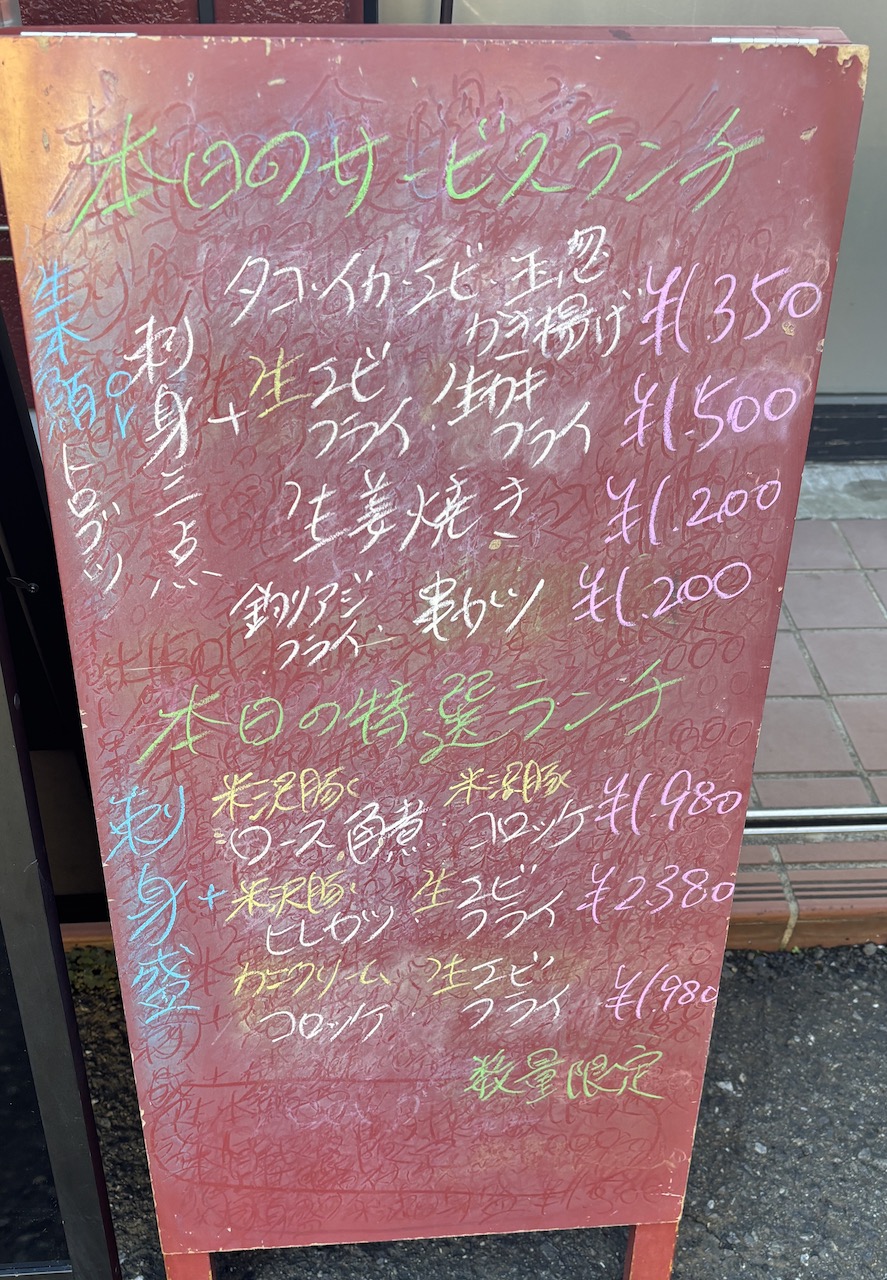 本日のサービスランチ
生本鮪トロブツ
or
刺身二点
+
タコ・イカ・エビ・玉葱
かき揚げ ¥1.350
生エビフライ・生カキフライ ¥1.500
生姜焼き ¥1.200
釣りアジフライ・串カツ ¥1.200
本日の特選ランチ
刺身盛
+
米沢豚ロース角煮・米沢豚コロッケ ¥1.980
米沢豚ヒレカツ・生エビフライ ¥2.380
カニクリームコロッケ・生エビフライ ¥1.980
数量限定